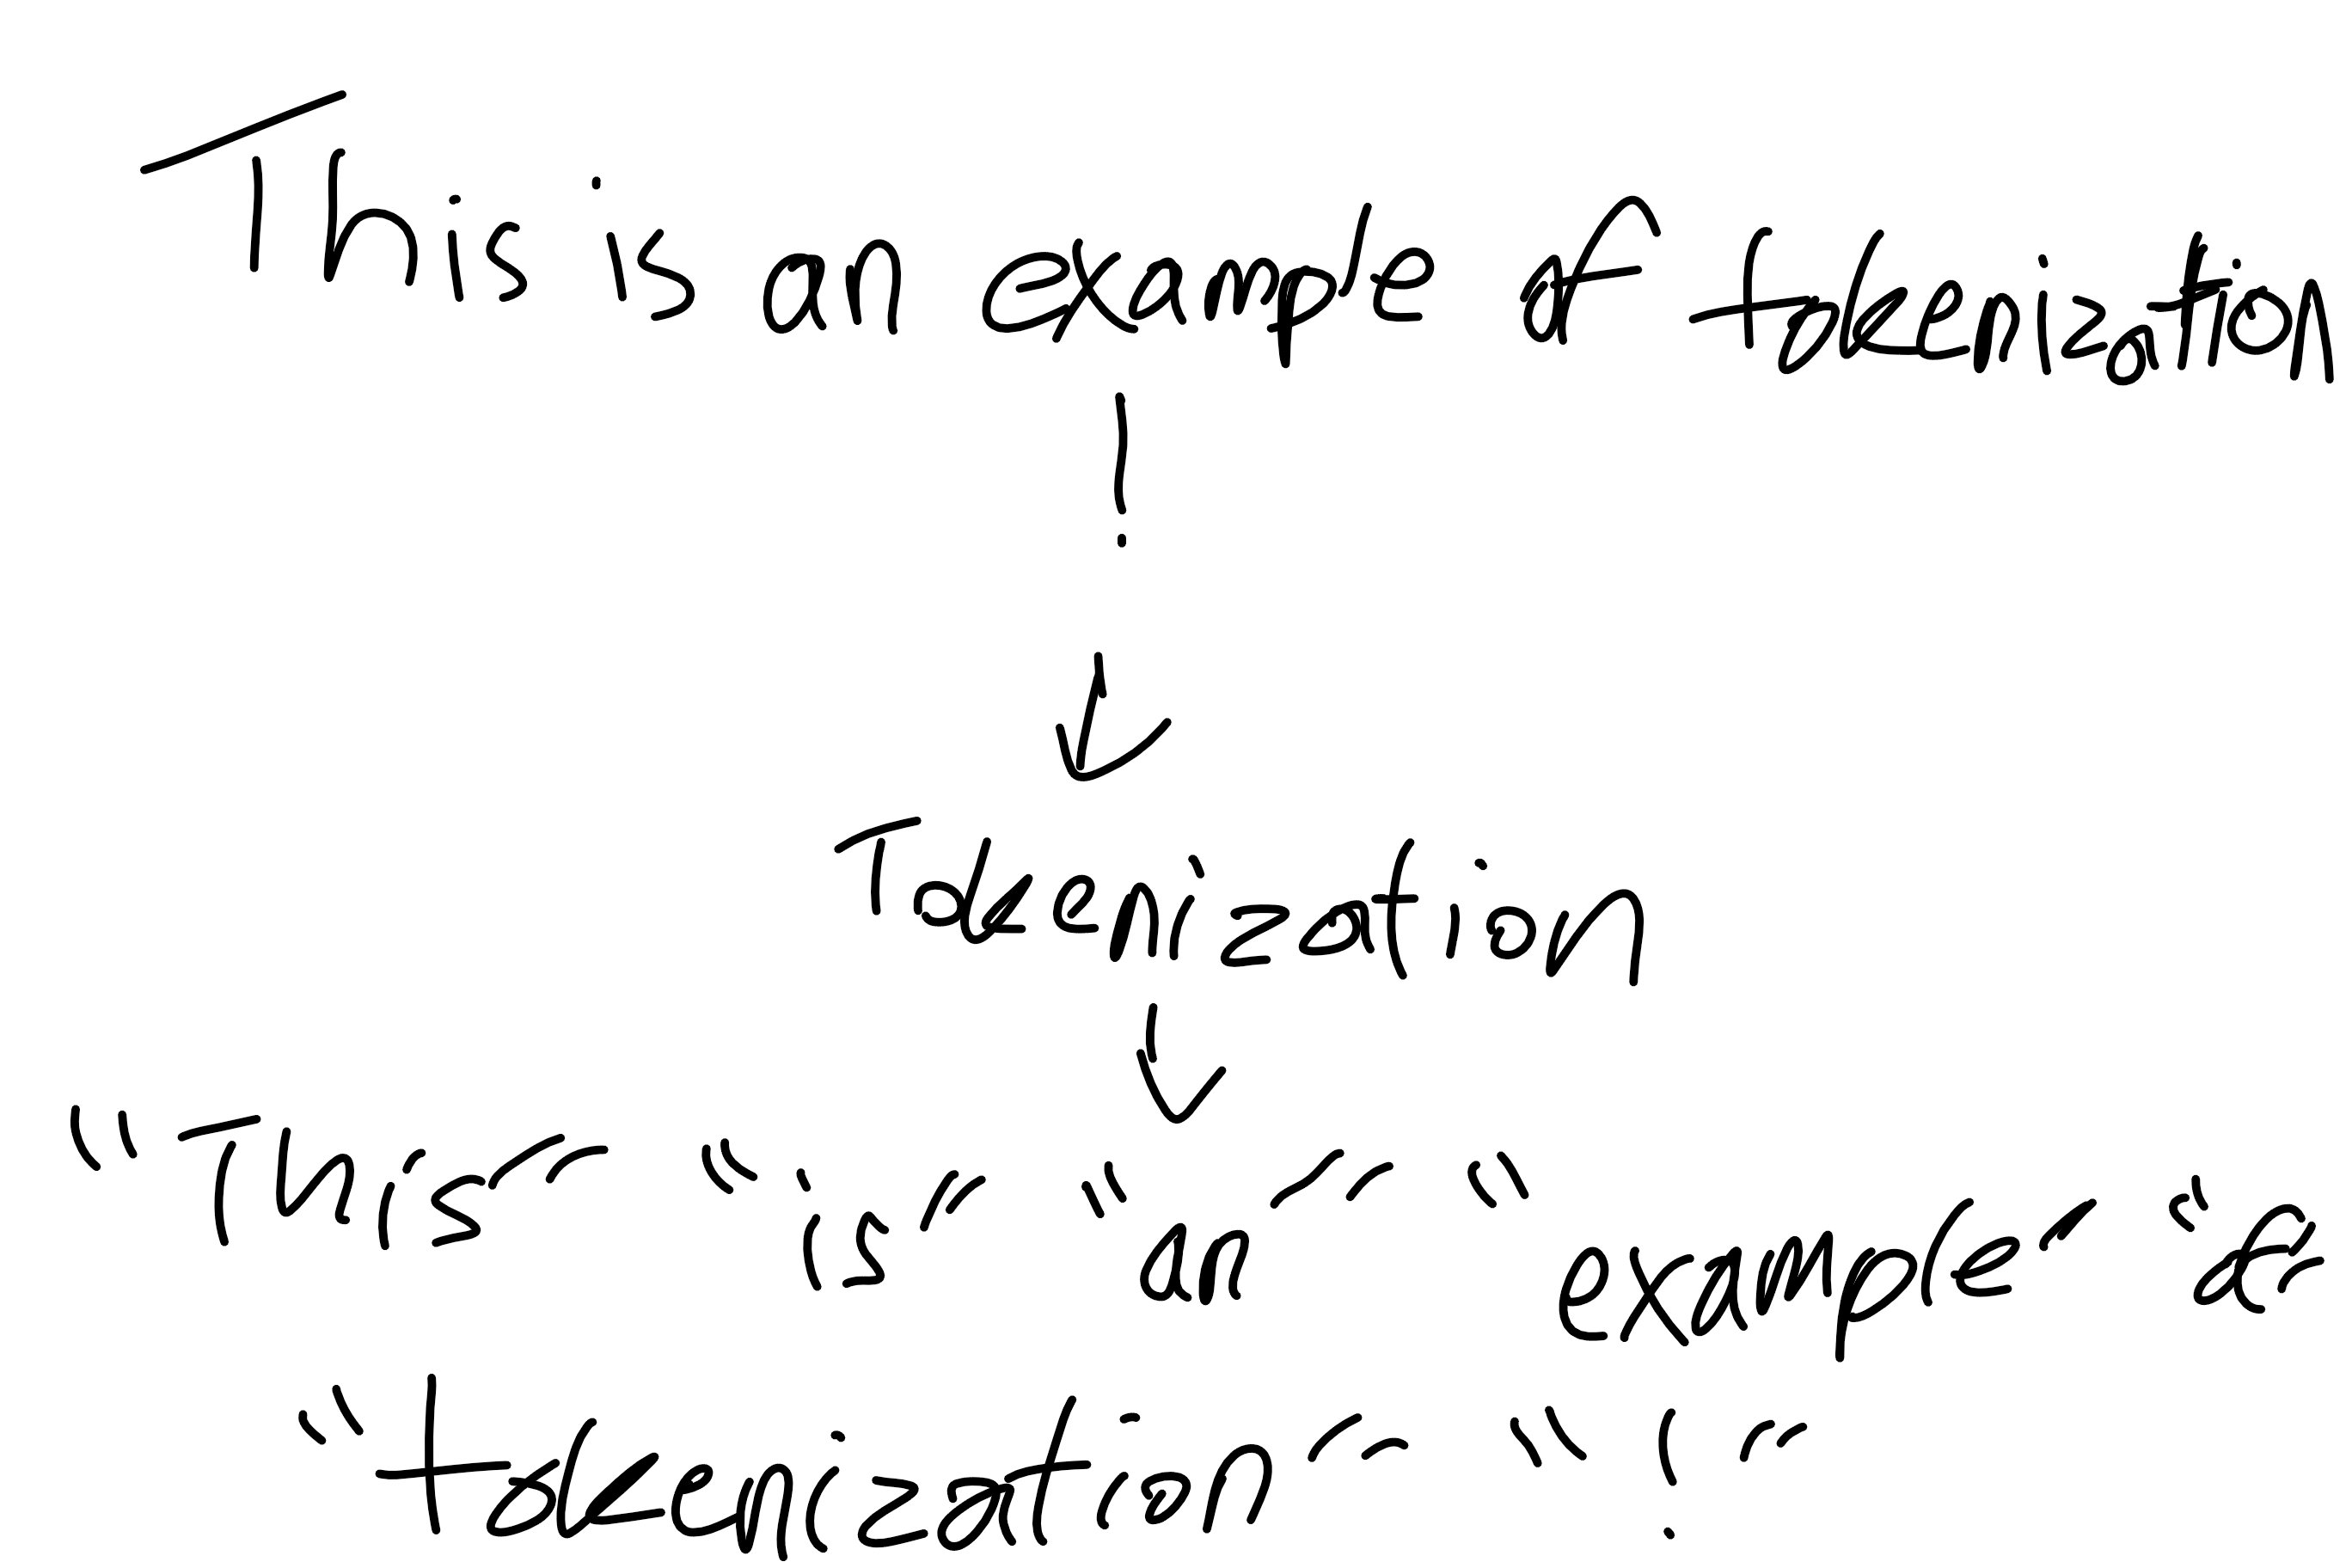 This is an example of tokenization
!
Tokenization
"This" "is" "an" "example" "of"
"tokenization" "!"